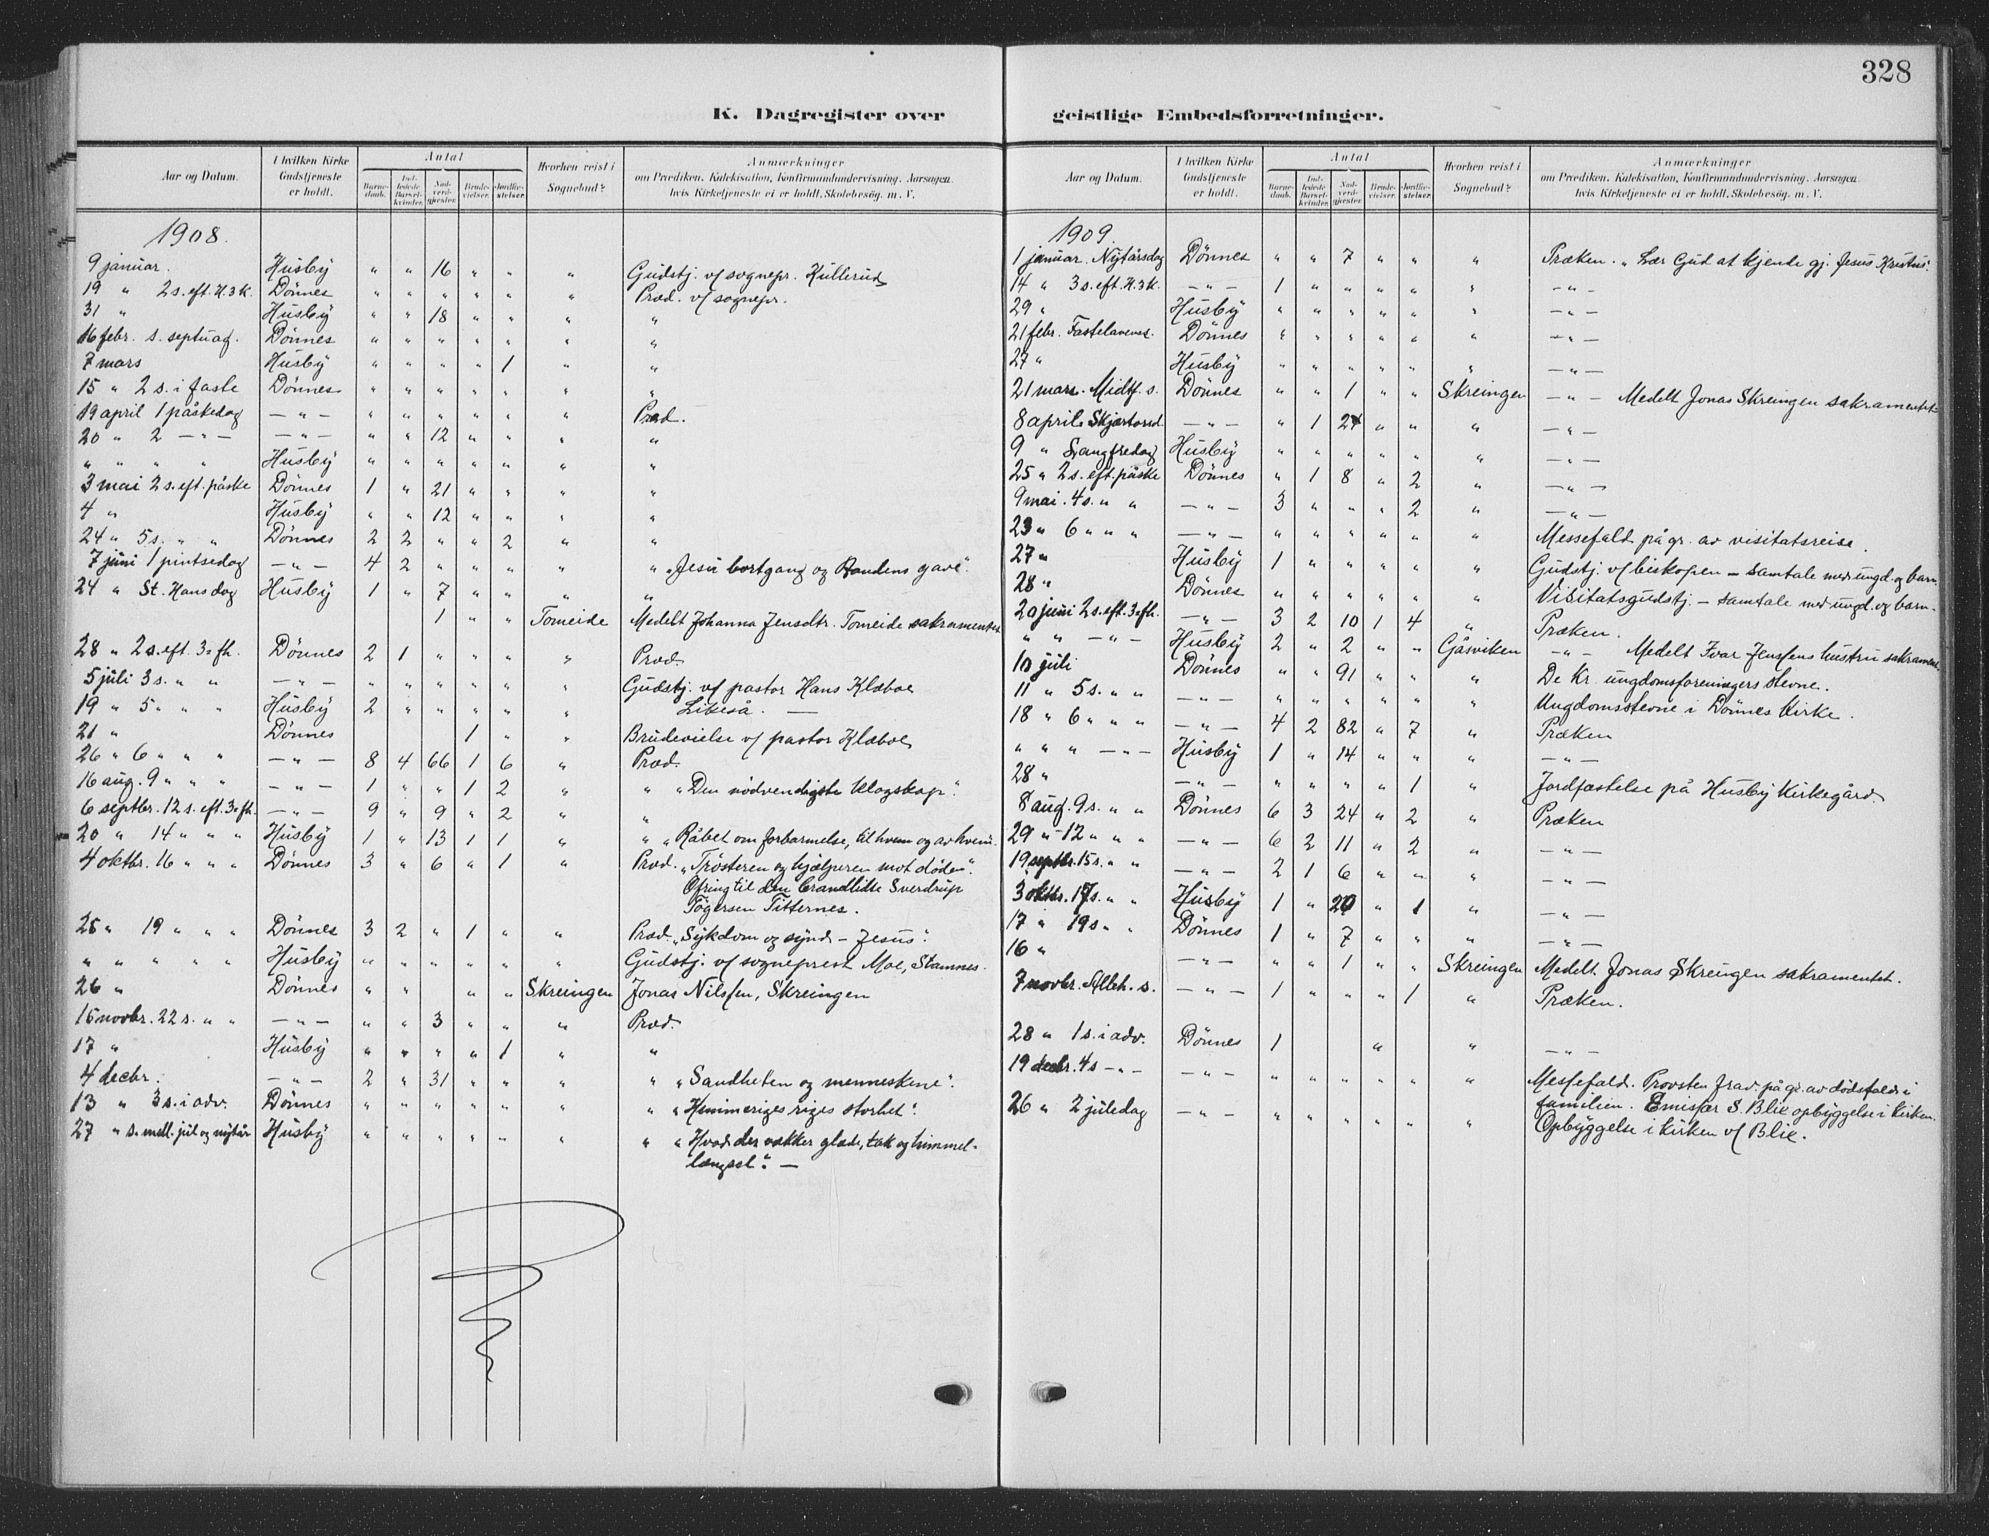 328
K. Dagregister over
Aar og Datum. I hvilken Kirke Gudstjeneste er holdt. Antal Barnedaab. Indledede Barselkvinder. Nadverdgjester. Brudevielser. Jordfæstelser. Hvorhen reist i Sognebud? Anmærkninger om Prædiken, Katekisation, Konfirmandundervisning, Aarsagen, hvis Kirketjeneste ei er holdt, Skolebesøg. m. V.
1908.
9 januar. Husby " " 16 " " " Gudstj. v/ sognepr. Kullerud
19 " 2 s. eft. H.3 K. Dönnes " " " " " " Præd. v/ sognepr.
31 " Husby " " 18 " " " "
16 febr. s. septuag. Dönnes " " " " " " "
7 mars Husby " " " " 1 " "
15 " 2 s. i faste Dönnes " " " " " " "
19 april 1 påskedag — " — " " " " " " Præd.
20 " 2 — " — — " — " " 12 " " " "
" " " " Husby " " " " " " "
3 mai 2 s. eft. påske Dönnes 1 " 21 " " " "
4 " Husby " " 12 " " " "
24 " 5 s. " " Dönnes 2 2 " " 2 " "
7 juni 1 pintsedag — " — 4 2 " " " " " "Jesu bortgang og Aandens gave".
24 " St. Hansdag Husby 1 " 7 " " " "
1 " " Tomeide Medelt Johanna Jensdtr. Tomeide sakramentet
28 " 2 s. eft. 3=fh. Dönnes 2 1 " " " " Præd.
5 juli 3 s. " " — " — " " " " " " Gudstj. v/ pastor Hans Klæboe
19 " 5 " " " Husby 2 " " " " " Likeså. —
21 " Dönnes 1 " " Brudevielse v/ pastor Klæboe
26 " 6 " " " — " — 8 4 66 1 6 " Præd.
16 aug. 9 " " " — " — 1 " " 1 2 " " "Den nödvendigste klogskap".
6 septbr. 12 s. eft. 3=fh. — " — 9 " 9 " 2 " "
20 " 14 " " " Husby 1 " 13 1 1 " " "Råbet om forbarmelse, til hvem og av hvem".
4 oktbr. 16 " " " Dönnes 3 " 6 " 1 " Præd. "Trösteren og hjælperen mot döden".
Ofring til den brandlidte Sverdrup
Tögersen Titternes.
25 " 19 " " " Dönnes 3 2 " 1 " " Præd. "Sykdom og synd – Jesus".
" " " " " Husby " " " " " " Gudstj. v/ sogneprest Moe, Stamnes.
26 " Dönnes " " " " Skreingen Jonas Nilssen, Skreingen
15 novbr. 22 s. " " — " — " " 3 " " " Præd.
17 " Husby " " " " 1 " "
4 decbr. — " — 2 " 31 " " " " "Sandheten og menneskene".
13 " 3 s. i adv. Dönnes " " " " " " " "Himmeriges riges storhet".
27 " s. mell. jul og nyår Husby " " " " " " " "Hvad der vækker glæde, tak og himmel-
længsel". —
geistlige Embedsforretninger.
Aar og Datum. I hvilken Kirke Gudstjeneste er holdt. Antal Barnedaab. Indledede Barselkvinder. Nadverdgjester. Brudevielser. Jordfæstelser. Hvorhen reist i Sognebud? Anmærkninger om Prædiken, Katekisation, Konfirmandundervisning, Aarsagen, hvis Kirketjeneste ei er holdt, Skolebesøg. m. V.
1909.
1 januar. Nytårsdag Dönnes " " 7 " " " Præken. "Lær Gud at kjende gj. Jesus Kristus".
14 " 3 s. eft. H.3 K. — " — 1 " " " " " — " —
29 " Husby " " " " " " — " —
21 febr. Fastelavens. Dönnes " " " " " " — " —
27 " Husby " " " " " " — " —
21 mars. Midtf. s. Dönnes " " 1 " " Skreingen — " — Medelt Jonas Skreingen sakramentet
8 april. Skjærtorsd. — " — " 1 24 " " " — " —
9 " Langfredag Husby " " " " " " — " —
25 " 2 s. eft. påske Dönnes " 1 8 " 2 " — " —
9 mai. 4 s. " " — " — 3 " " " 2 " — " —
23 " 6 " " " — " — " " " " " " Messefald på gr. av visitatsreise.
27 " Husby 1 " " " " " Gudstj. v/ biskopen – samtale med ungd. og barn.
28 " Dönnes " " " " " " Visitatsgudstj. – samtale med ungd. og barn.
20 juni 2 s. eft. 3=fh. — " — 3 2 10 1 4 " Præken.
" " — " — Husby 2 " 2 " " Gåsviken — " — Medelt Ivar Jenssens hustru sakrament
10 juli Dönnes " " 91 " " " De Kr. ungdomsforeningers stevne.
11 " 5 s. " " — " — " " " " " " Ungdomsstevne i Dönnes Kirke.
18 " 6 " " " — " — 4 2 82 " 7 " Præken
" " " — " — Husby 1 " 14 " " " — " —
28 " — " — " " " " 1 " Jordfæstelse på Husby Kirkegård.
8 aug. 9 s. " " Dönnes 6 3 24 " 2 " Præken
29 " 12 " " " — " — 6 2 11 " 2 " — " —
19 septbr. 15 s. " " — " — 2 1 6 " " " — " —
3 oktbr. 17 s. " " Husby 1 " 20 " 1 " — " —
17 " 19 s " " Dönnes 1 " 7 " " " — " —
16 " — " — " " 1 " " Skreingen Medelt Jonas Skreingen sakramentet.
7 novbr. Alleh. s. — " — 1 " " " 1 " Præken.
28 " 1 s. i adv. Dönnes 1 " " — " —
19 decbr. 4 s — " — — " — " " " " " " Messefald. Provsten frav. på gr. av dödsfald i
familien. Emissær S. Blix opbyggelse i kirken.
26 " 2 juledag — " — " " " " " " Opbyggelse i kirken v/ Blix.